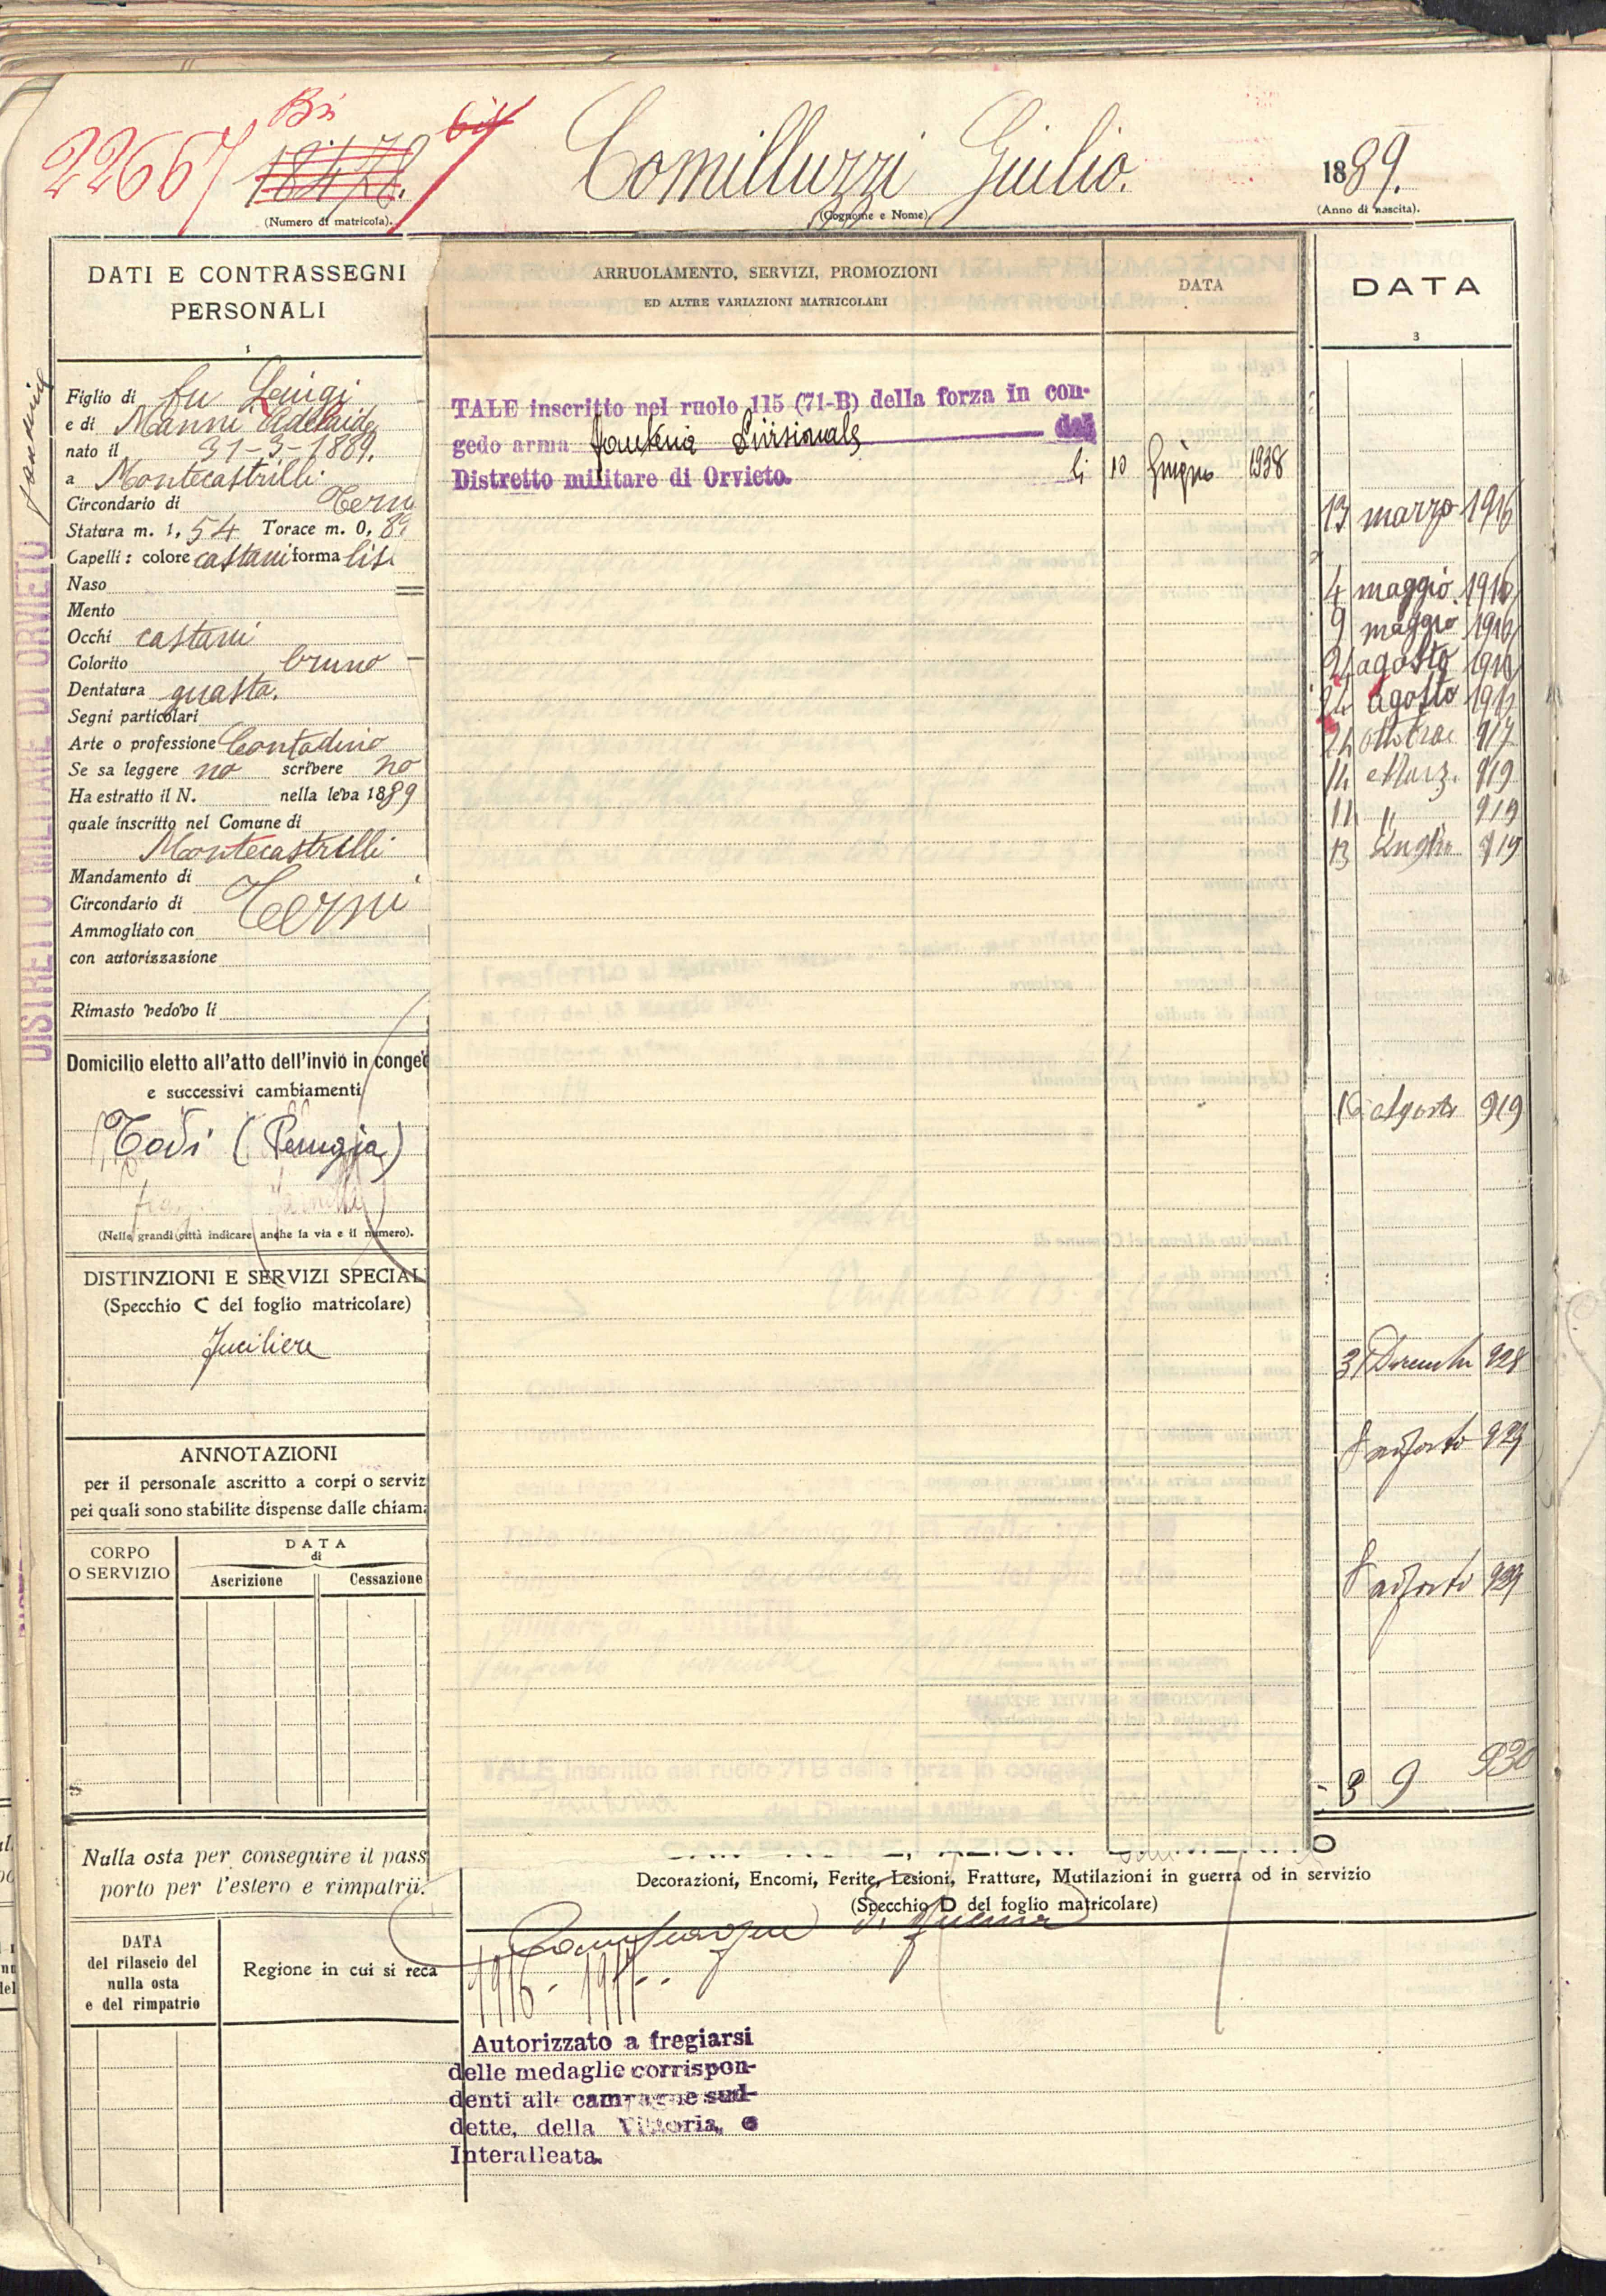 22667 Bis 18478. bis
Comilluzzi Giulio.
1889.
(Numero di matricola).
(Cognome e Nome)
(Anno di nascita).
DATI E CONTRASSEGNI
PERSONALI
1
Figlio di fu Luigi
e di Manni Adelaide
nato il 31-3-1889.
a Montecastrilli
Circondario di Terni
Statura m. 1, 54 Torace m. 0, 8
Capelli: colore castani forma lis
Naso
Mento
Occhi castani
Colorito bruno
Dentatura guasta.
Segni particolari
Arte o professione Contadino
Se sa leggere no scrivere no
Ha estratto il N. nella leva 1889
quale inscritto nel Comune di
Montecastrilli
Mandamento di
Circondario di Terni
Ammogliato con
con autorizzazione
Rimasto vedovo li
Domicilio eletto all'atto dell'invio in conge
e successivi cambiamenti
Todi (Perugia)
(Nelle grandi città indicare anche la via e il numero).
DISTINZIONI E SERVIZI SPECIAL
(Specchio C del foglio matricolare)
Fuciliere
ANNOTAZIONI
per il personale ascritto a corpi o serviz
pei quali sono stabilite dispense dalle chiam
CORPO
O SERVIZIO
DATA
di
Ascrizione
Cessazione
Nulla osta per conseguire il pass
porto per l'estero e rimpatrii.
DATA
del rilascio del
nulla osta
e del rimpatrio
Regione in cui si reca
DISTRETTO MILITARE DI ORVIETO
ARRUOLAMENTO, SERVIZI, PROMOZIONI
ED ALTRE VARIAZIONI MATRICOLARI
DATA
TALE inscritto nel ruolo 115 (71-B) della forza in con-
gedo arma Fanteria Divisionale del
Distretto militare di Orvieto. li 10 Giugno 1938
DATA
3
13 marzo 1916
4 maggio 1916
9 maggio 1916
24 agosto 1916
24 Agosto 1917
24 ottobre 917
14 Marz. 919
11 " 919
13 Luglio 919
16 Agosto 919
31 Dicembre 928
8 agosto 929
8 agosto 929
3 9 930
Decorazioni, Encomi, Ferite, Lesioni, Fratture, Mutilazioni in guerra od in servizio
(Specchio D del foglio matricolare)
Campagne di guerra
1916 - 1917.
Autorizzato a fregiarsi
delle medaglie corrispon-
denti alle campagne sud-
dette, della Vittoria, e
Interalleata.